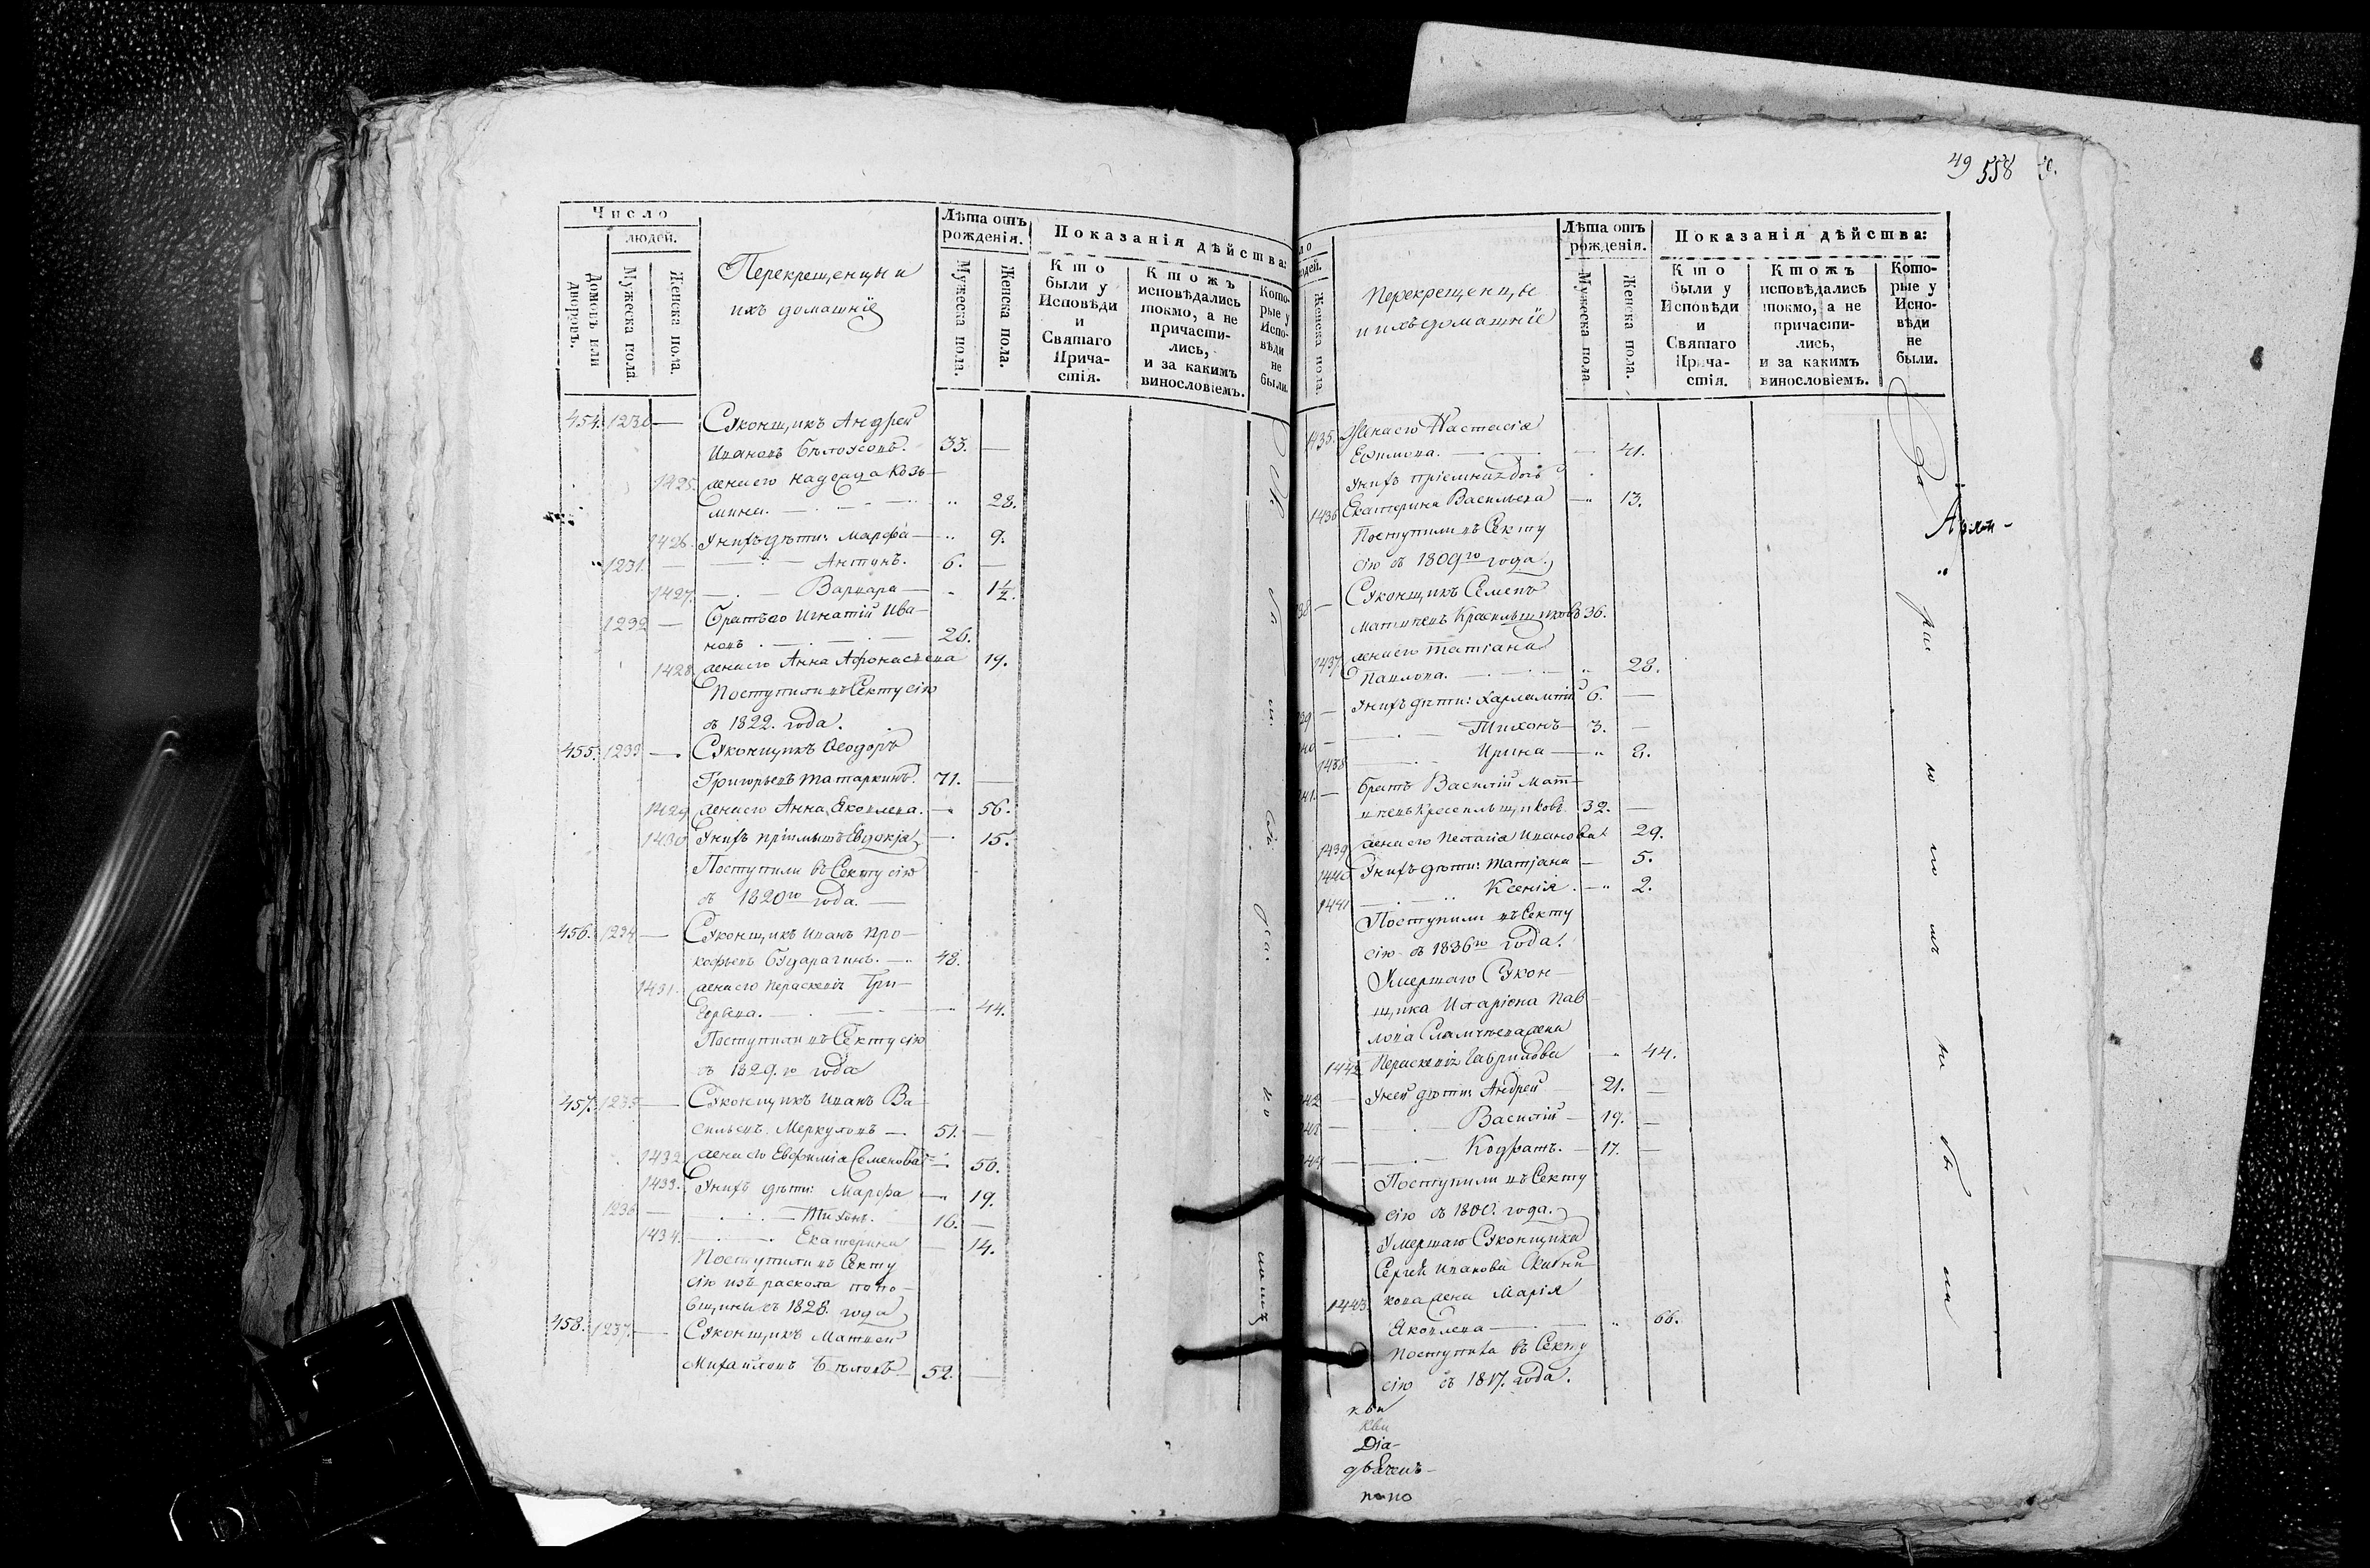 Число
людей.
Домовъ или дворовъ.
Мужеска пола.
Женска пола.
Перекрещенцы и
ихъ домашніе
Лѣта отъ
рожденія.
Мужеска пола.
Женска пола.
Показанія дѣйства:
Кто
были у
Исповѣди
и
Святаго
Прича-
стія.
Ктожъ
исповѣдались
токмо, а не
причасти-
лись,
и за какимъ
винословіемъ.
Кото-
рые у
Испо-
вѣди
не
были.
454. 1230 — Суконщикъ Андрей
Ивановъ Бѣлоусовъ. 33. —
1425. жена его Надежда Козь-
мина. — 28.
1426. У нихъ дѣти: Марфа — 9.
1231. — Антонъ. 6. —
1427. — Варвара — 1½.
1232 — Братъ его Игнатій Ива-
новъ. — 26.
1428. жена его Анна Афонасьева 19.
Поступили въ Секту сію
съ 1822. года.
455. 1233 — Суконщикъ Ѳеодоръ
Григорьевъ Татаркинъ. 71. —
1429 жена его Анна Яковлева. — 56.
1430 У нихъ пріимышъ Евдокія — 15.
Поступили въ Секту сію
съ 1820го года. —
456. 1234 — Суконщикъ Иванъ Про-
кофьевъ Бударагинъ. — 48.
1431. жена его Параскевія Гри-
горьева. — 44.
Поступили въ Секту сію
съ 1829.го года
457. 1235 — Суконщикъ Иванъ Ва-
сильевъ Меркуловъ — 51. —
1432 жена его Евфимія Семенова — 50.
1433. У нихъ дѣти: Марфа — 19.
1236 — Тихонъ. 16. —
1434. — Екатерина — 14.
Поступили въ Секту
сію изъ раскола попо-
вщины съ 1828. года
458. 1237. — Суконщикъ Матвей
Михайловъ Бѣловъ 52. —
49 558
Женска пола.
Перекрещенцы
и ихъ домашніе
Лѣта отъ
рожденія.
Мужеска пола
Женска пола.
Показанія дѣйства:
Кто
были у
Исповѣди
и
Святаго
Прича-
стія.
Ктожъ
исповѣдались
токмо, а не
причасти-
лись,
и за какимъ
винословіемъ.
Кото-
рые у
Испо-
вѣди
не
были.
1435. Жена его Настасія
Ефимова. — 41.
У нихъ пріемная дочь
1436 Екатерина Васильева — 13.
Поступили въ Секту
сію съ 1809го года.
— Суконщикъ Семенъ
Матвеевъ Красильщиковъ 36.
1437. жена его Татіана
Павлова. — 28.
— У нихъ дѣти: Харлампій 6. —
— Тихонъ — 3. —
1438 — Ирина —
— Братъ Василій Мат-
веевъ Красильщиковъ. 32. —
1439 жена его Пелагія Иванова 29.
1440 У нихъ дѣти: Татіана — 5.
1441 — Ксенія. — 2.
Поступили въ Секту
сію съ 1836го года.
Умершаго Сукон-
щика Иларіона Пав-
лова жена
1442 Параскевія Гаврилова — 44.
— У ней дѣти: Андрей 21. —
— Василій — 19. —
— Кодратъ. — 17. —
Поступили въ Секту
сію съ 1800. года.
Умершаго Суконщика
Сергѣя Иванова
1443 кова жена Марія
Яковлева — 66.
Поступила въ Секту
сію съ 1817. года.
Діа-